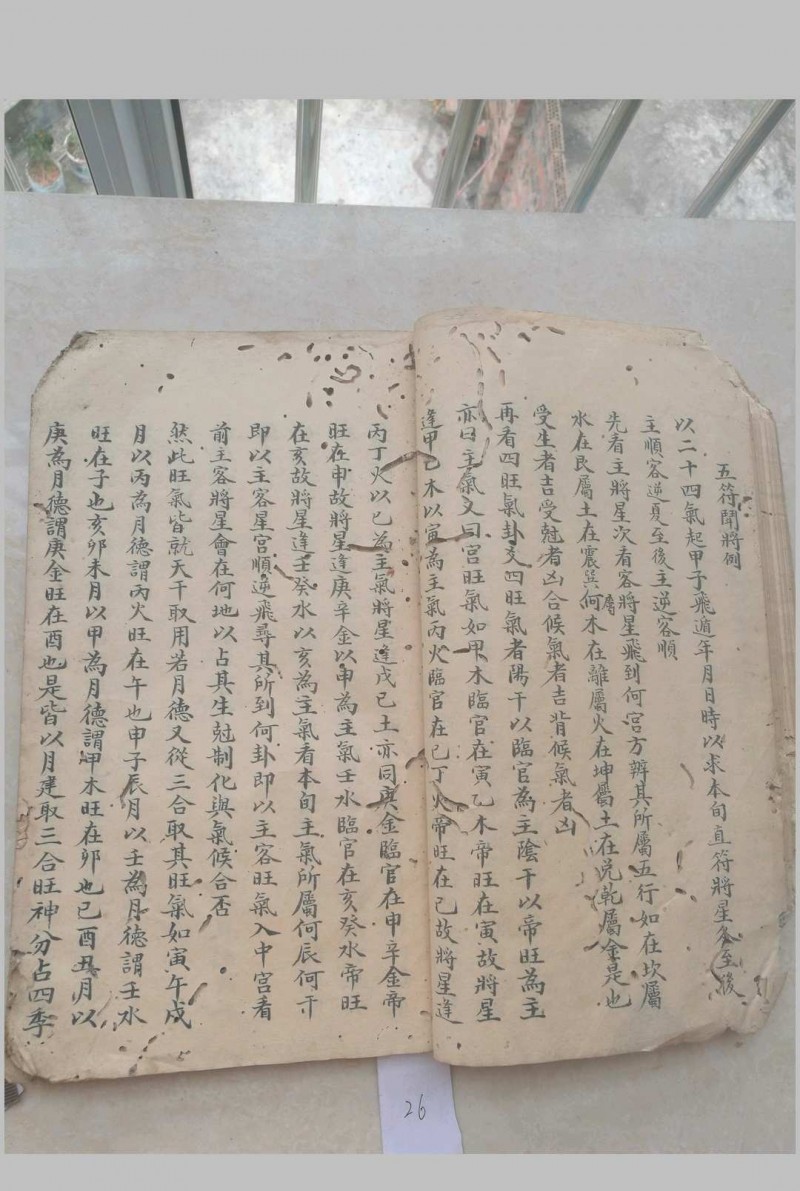 五符開將例
以二十四氣起甲子飛遁年月日時以求本旬直符將星冬至後
主順客逆夏至後主逆客順
先看主將星次看客將星飛到何宮方辨其所屬五行如在坎屬
水在艮屬土在震巽屬木在離屬火在坤屬土在兌乾屬金是也
受生者吉受尅者凶合候氣者吉背候氣者凶
再看四旺氣卦爻四旺氣者陽干以臨官為主陰干以帝旺為主
亦曰主氣又曰宮旺氣如甲木臨官在寅乙木帝旺在寅故將星
逢甲乙木以寅為主氣丙火臨官在巳丁火帝旺在巳故將星逢
丙丁火以巳為主氣將星逢戊己土亦同庚金臨官在申辛金帝
旺在申故將星逢庚辛金以申為主氣壬水臨官在亥癸水帝旺
在亥故將星逢壬癸水以亥為主氣看本旬主氣所屬何辰何干
即以主客星宮順逆飛尋其所到何卦即以主客旺氣入中宮看
前主客將星會在何地以占其生尅制化與氣候合否
然此旺氣皆就天干取用若月德又從三合取其旺氣如寅午戌
月以丙為月德謂丙火旺在午也申子辰月以壬為月德謂壬水
旺在子也亥卯未月以甲為月德謂甲木旺在卯也巳酉丑月以
庚為月德謂庚金旺在酉也是皆以月建取三合旺神分占四季
26